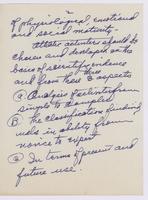 of physiological emotional
and social maturity.
These activities should be
chosen and developed on the
basis of scientific evidence
and from these 3 aspects
(a) Analysis of skills from
simple to complex
(B) The classification of indivi
duals in ability from
novice to expert
(c) In terms of present and
future use.